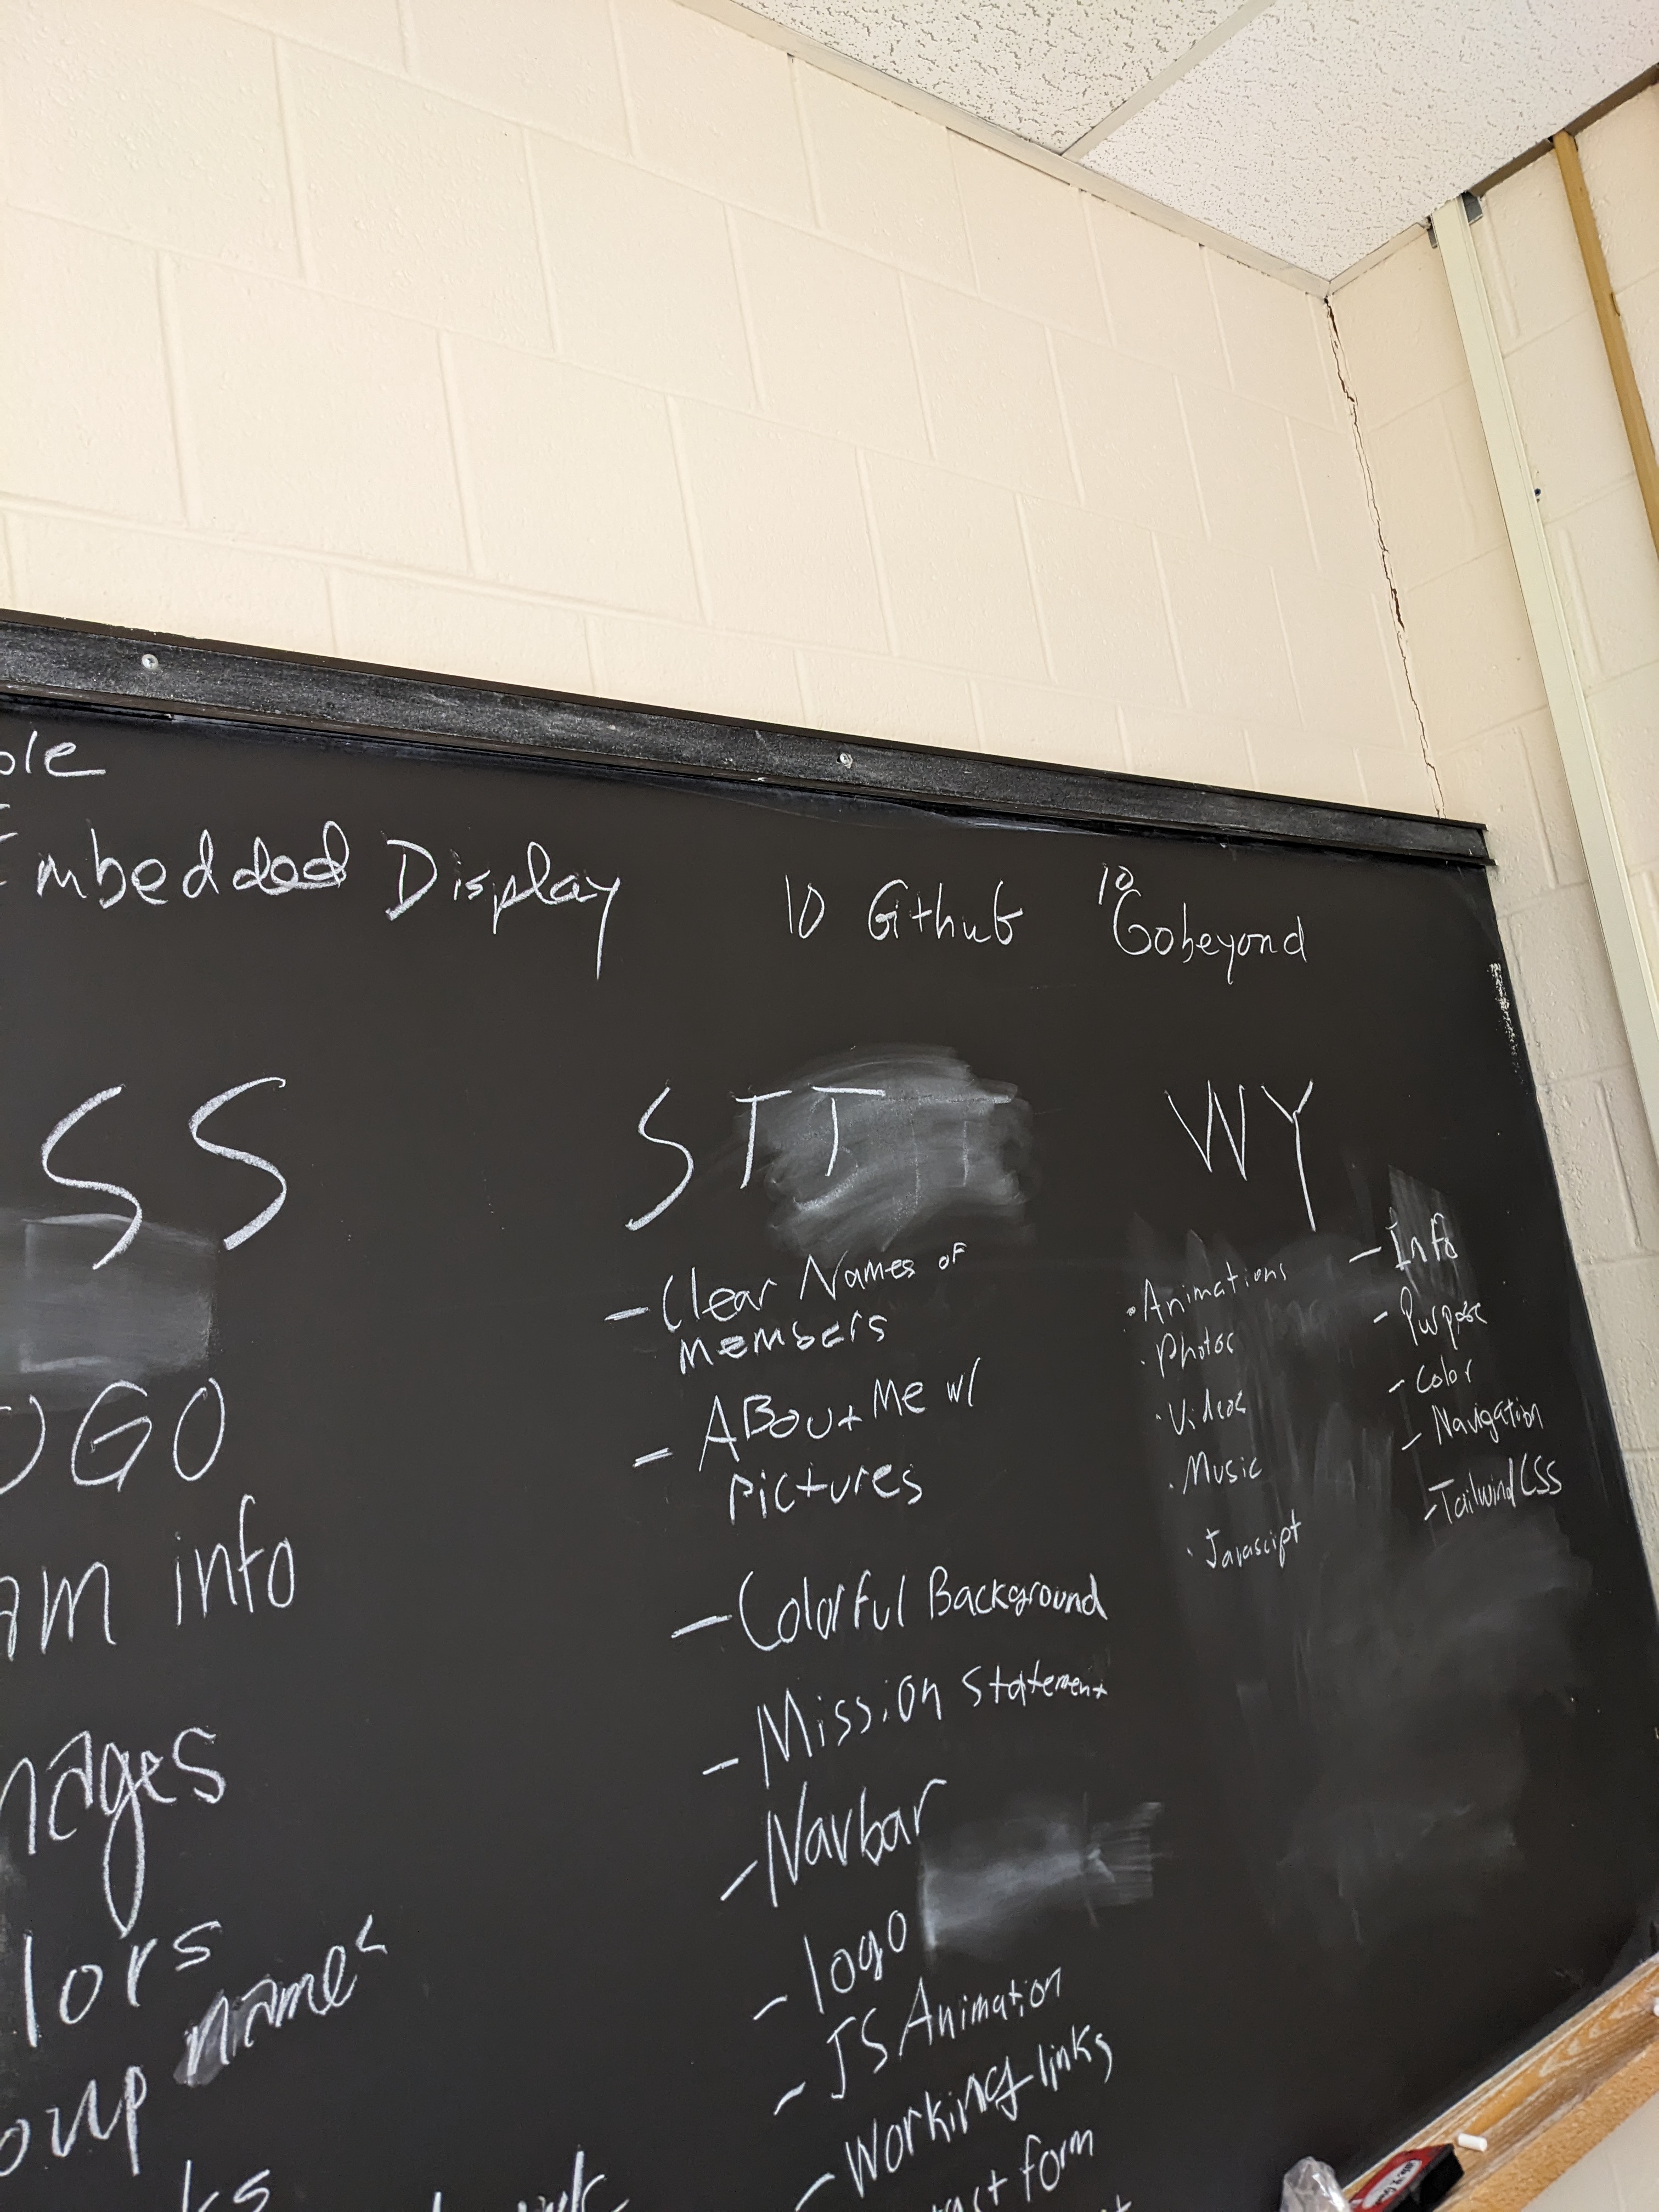 ole
Embedded Display
10 Github
10
Gobeyond
SS
OGO
am info
mages
lors
oup names
ks
STT
- Clear Names of
members
- ABout Me w/
Pictures
- Colorful Background
- Mission Statement
- Navbar
- logo
- JS Animation
- Working links
act form
WY
· Animations
· Photos
· Videos
· Music
· Javascipt
- Info
- Purpose
- Color
- Navigation
- Tailwind CSS